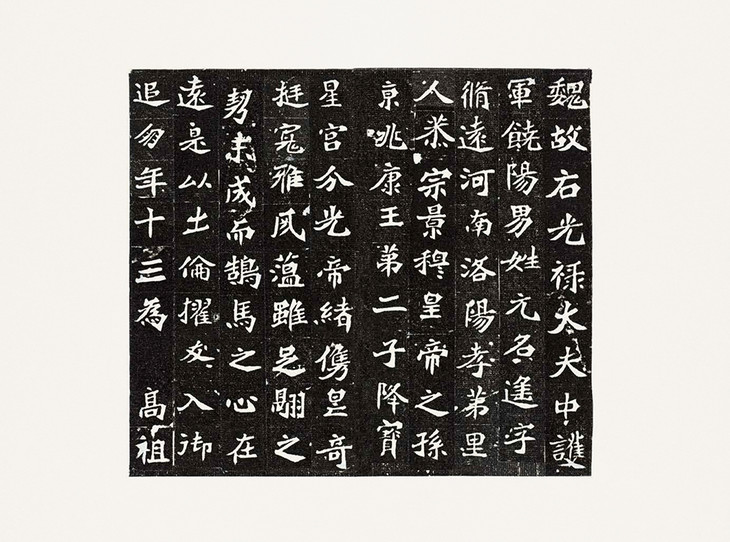 魏故右光禄大夫中護
軍饒陽男姓元名遥字
脩遠河南洛陽孝弟里
人恭宗景穆皇帝之孫
京兆康王第二子降寶
星宮分光帝緒儁奇
挺寬雅夙蕰雖足之
未成而鵠馬之心在
遠是以出倫擢入御
年十三為 高祖